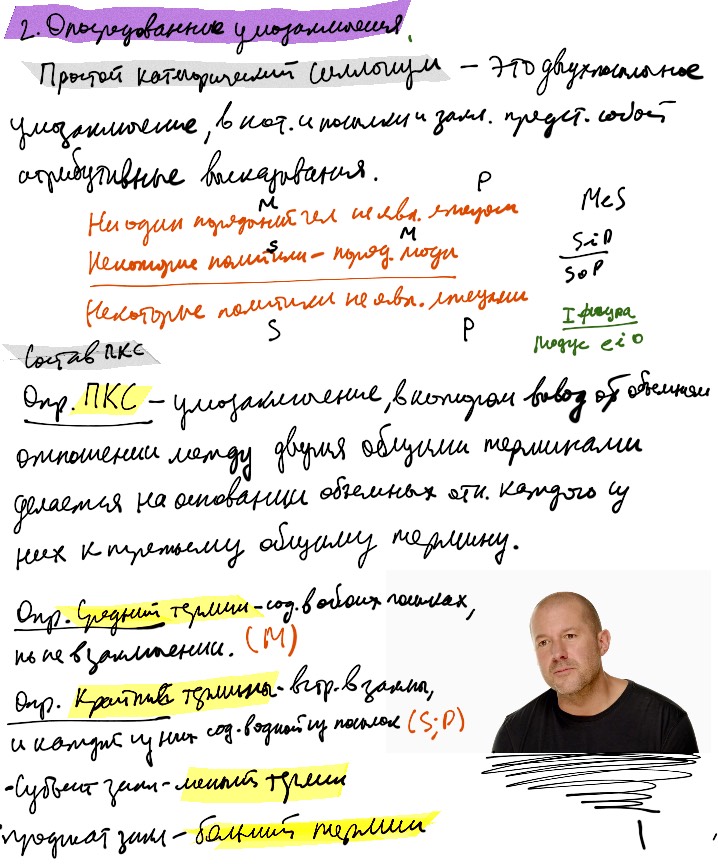 2. Опосредованные умозаключения
Простой категорический силлогизм – это двухпосылочное
умозаключение, в кот. и посылки и закл. предст. собой
атрибутивные высказывания.
M P
Ни один порядочный чел не явл. лжецом MeS
S M
Некоторые политики – поряд. люди SiP
Некоторые политики не явл. лжецами SoP
S P
I фигура
Модус eio
Состав ПКС
Опр. ПКС – умозаключение, в котором вывод об объемном
отношении между двумя общими терминами
делается на основании объемных отн. каждого из
них к третьему общему термину.
Опр. Средний термин – сод. в обоих посылках,
но не в заключении. (M)
Опр. Крайние термины – встр. в заключ,
и каждый из них сод. в одной из посылок (S; P)
- Субъект закл – меньший термин
- предикат закл – больший термин